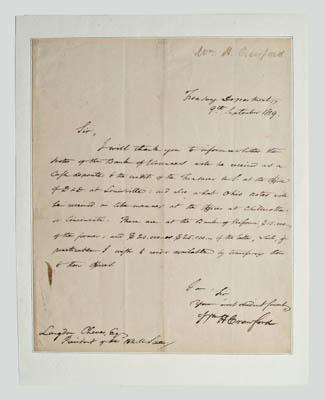 Wm. H. Crawford
Treasury Department
9th September 1819.
Sir,
I will thank you to inform me whether the
notes of the Bank of Vincennes will be received as a
Cash deposit to the credit of the Treasurer U.S. at the Office
of D & D at Louisville; and also what Ohio notes will
be received in like manner at the Offices at Chillicothe
or Cincinnati. There are at the Bank of
of the former; and $20.000 or $25.000 of the latter, which, if
practicable I wish to render available by transferring them
to those offices.
I am, Sir
Your most obedient servant
Wm H Crawford
Langdon Cheves, Esq
President of the